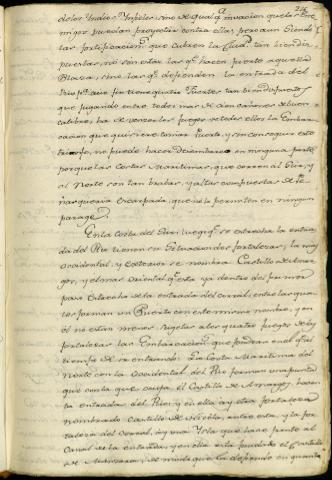 de los Yndios Ynfieles, sino de qualqª invacion que los ene
migos puedan proyectar contra ellas, pero aun siendo
las fortificaciones que cubren la Ciud tan bien dis
puestas, no son estas las qe hacen fuerte aquella
Plaza, sino las qe defienden la entrada del
Rio, pª cuio fin tiene quatro Fuertes tan bien dispuestos qe
que jugando entre todos mas de cien cañones de buen
calibre, ha de vencer los fuegos de todos ellos la Embar
cacion que quisiere tomar Puerto, y sin conseguir este
triunfo, no puede hacer Desembarco en ninguna parte
porque las Costas Maritimas, que corren al Sur, y
al Norte son tan bravas, y altas compuestas de Pe
ñasqueria escarpada, que no lo permiten en ningun
parage.
En la Costa del Sur luego qe se estrecha la entra
da del Rio tienen su situacion dos fortalezas; la mas
occidental, y exterior se nombra Castillo de Amar
gos, y el mas oriental qe esta ya dentro del primer
paso estrecho de la entrada del Corral; entre las qua
les forman un Puerto con este mismo nombre, y en
el no estan menos sugetas a los quatro fuegos de las
fortalezas las Embarcaciones que podran en el qe al
tiempo de su entrando. La Costa Maritima del
Norte con la Occidental del Rio forman una punta
que con la que ocupa el Castillo de Amargos, hacen
la entrada del Rio; y en ella ay otra fortaleza
nombrado Castillo de Niebla; entre esta, y la for
taleza del Corral, ay una Ysla que hace frente al
Canal de la entrada, y en ella esta fundado el Castillo
de Manzera, de modo que la defienden en quanto